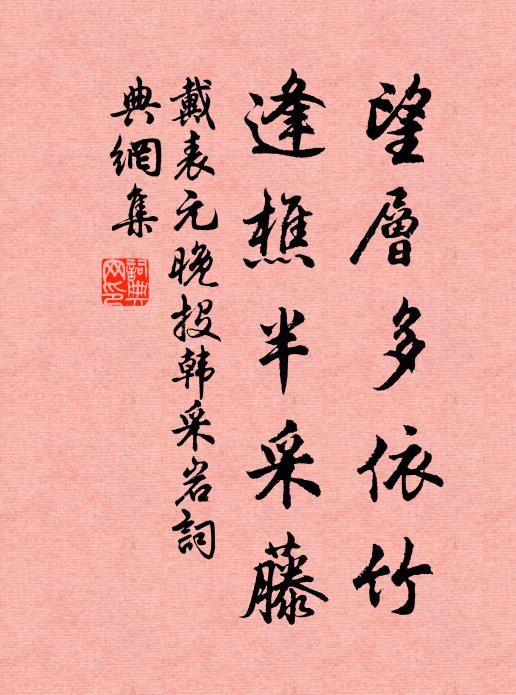 望層多依竹
逢樵半采藤
戴表元晚投韩采岩詞
典網集
詞典网印